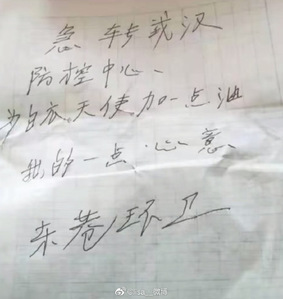 急转武汉
防控中心、
为白衣天使加一点油
我的一点心意
东巷环卫